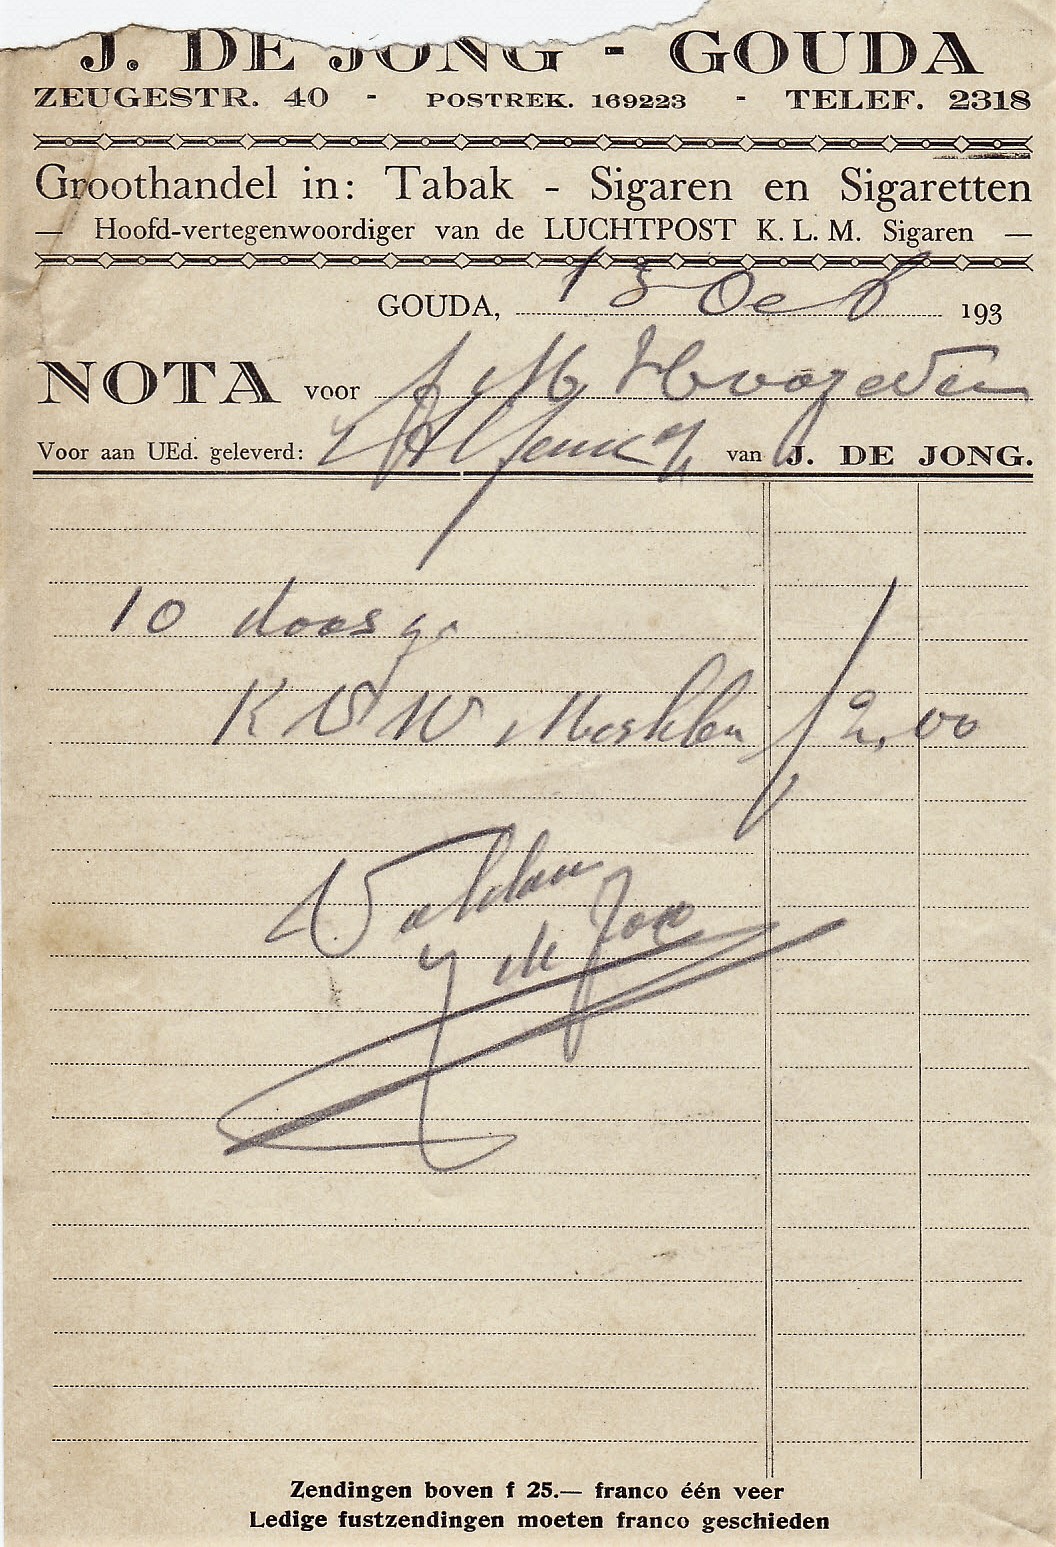 J. DE JONG - GOUDA
ZEUGESTR. 40 - POSTREK. 169223 - TELEF. 2318
Groothandel in: Tabak - Sigaren en Sigaretten
— Hoofd-vertegenwoordiger van de LUCHTPOST K. L. M. Sigaren —
GOUDA, 13 Oct 193
NOTA voor
Voor aan UEd. geleverd: van J. DE JONG.
10 doosjes
2,00
Voldaan
J de Jong
Zendingen boven f 25.— franco één veer
Ledige fustzendingen moeten franco geschieden